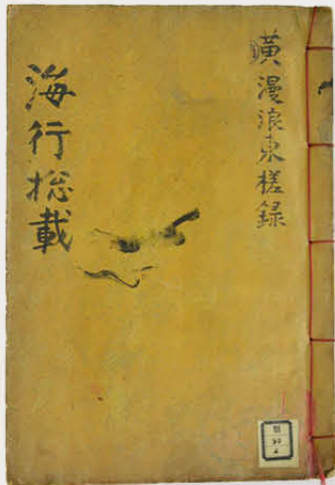 黃漫浪東槎録
海行捴載